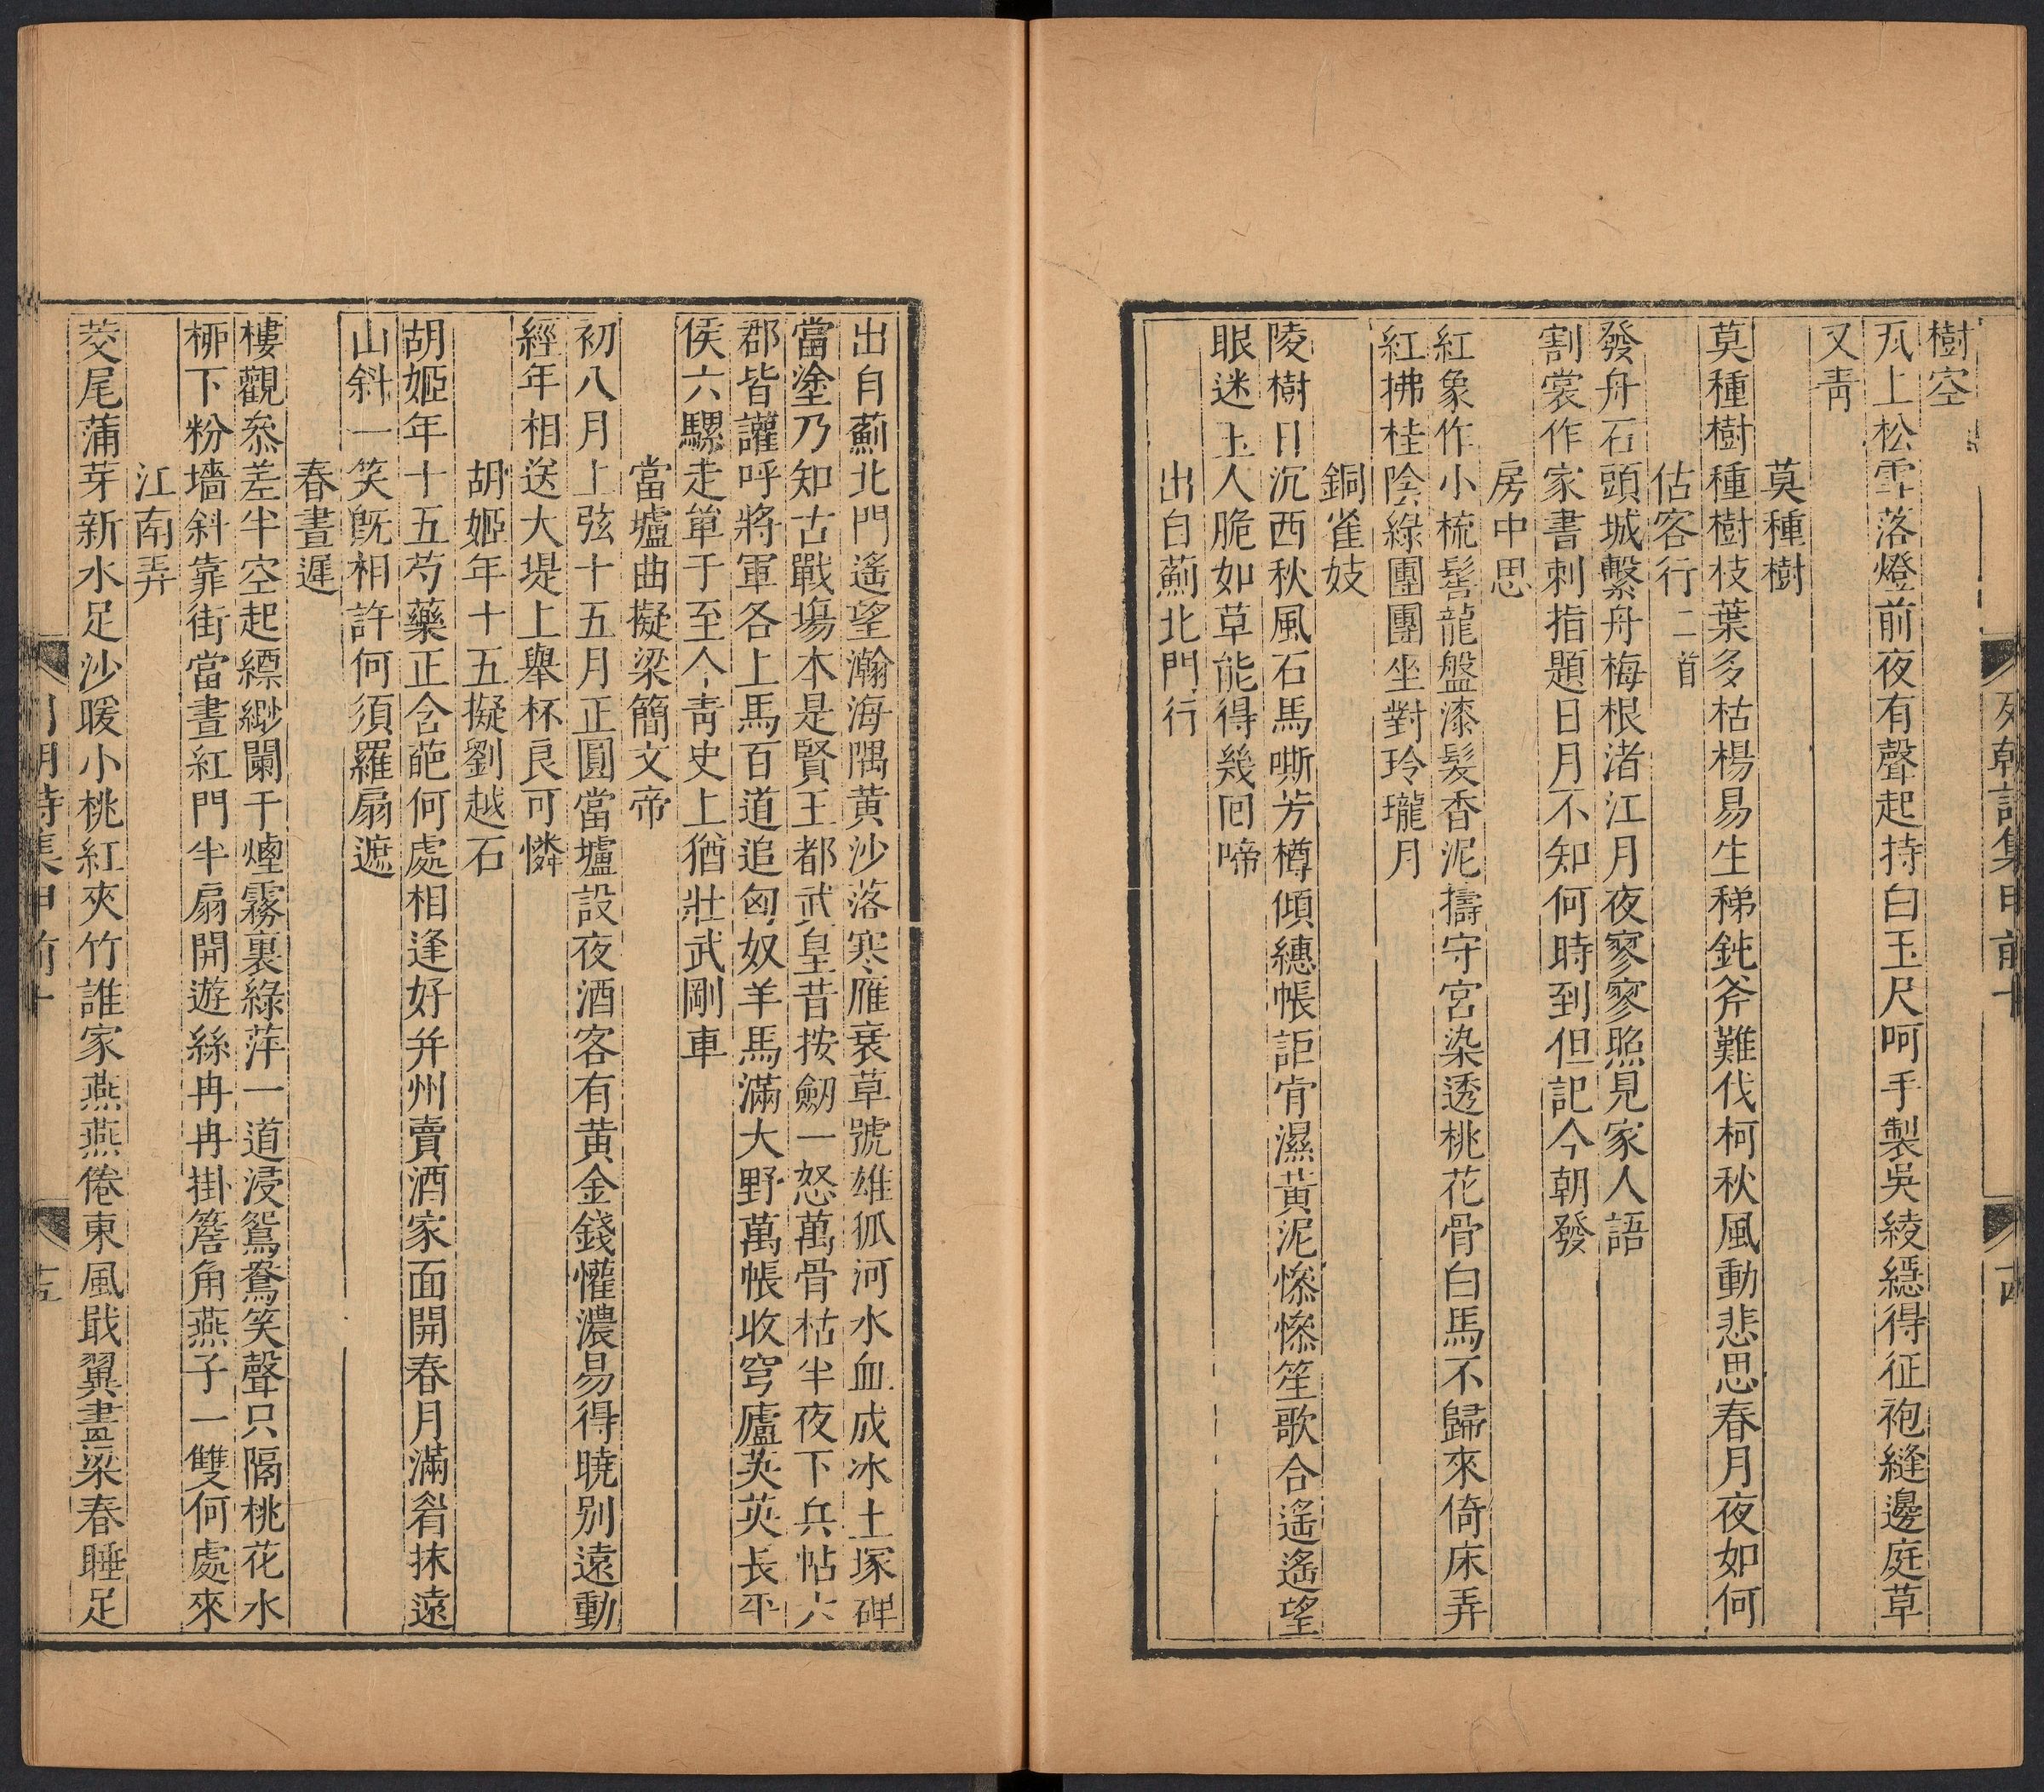 樹空
瓦上松雪落燈前夜有聲起持白玉尺呵手製吳綾纊得征袍縫邊庭草
又青
莫種樹
莫種樹種樹枝葉多枯楊易生稊鈍斧難伐柯秋風動悲思春月夜如何
估客行二首
發舟石頭城繫舟梅根渚江月夜寥寥照見家人語
割裳作家書刺指題日月不知何時到但記今朝發
房中思
紅象作小梳髻龍盤漆髮香泥擣守宮染透桃花骨白馬不歸來倚床弄
紅拂桂陰綠團團坐對玲瓏月
銅雀妓
陵樹日沉西秋風石馬嘶芳樽傾繐帳詎肯濕黃泥慘慘笙歌合遙遙望
眼迷玉人脆如草能得幾回啼
出自薊北門行
列朝詩集甲前十
出自薊北門遙望瀚海隅黃沙落寒雁衰草號雄狐河水血成冰土塚碑
當塗乃知古戰場本是賢王都武皇昔按劒一怒萬骨枯半夜下兵帖六
郡皆讙呼將軍各上馬百道追匈奴羊馬滿大野萬帳收穹廬英英長平
侯六騾走單于至今青史上猶壯武剛車
當壚曲擬梁簡文帝
初八月上弦十五月正圓當壚設夜酒客有黃金錢懽濃易得曉別遠動
經年相送大堤上舉杯良可憐
胡姬年十五擬劉越石
胡姬年十五芍藥正含葩何處相逢好并州賣酒家面開春月滿眉抹遠
山斜一笑旣相許何須羅扇遮
春晝遲
樓觀叅差半空起縹緲闌干煙霧裏綠萍一道浸鴛鴦笑聲只隔桃花水
栁下粉墻斜靠街當晝紅門半扇開遊絲冉冉掛簷角燕子一雙何處來
江南弄
茭尾蒲芽新水足沙暖小桃紅夾竹誰家燕燕倦東風戢翼畫梁春睡足